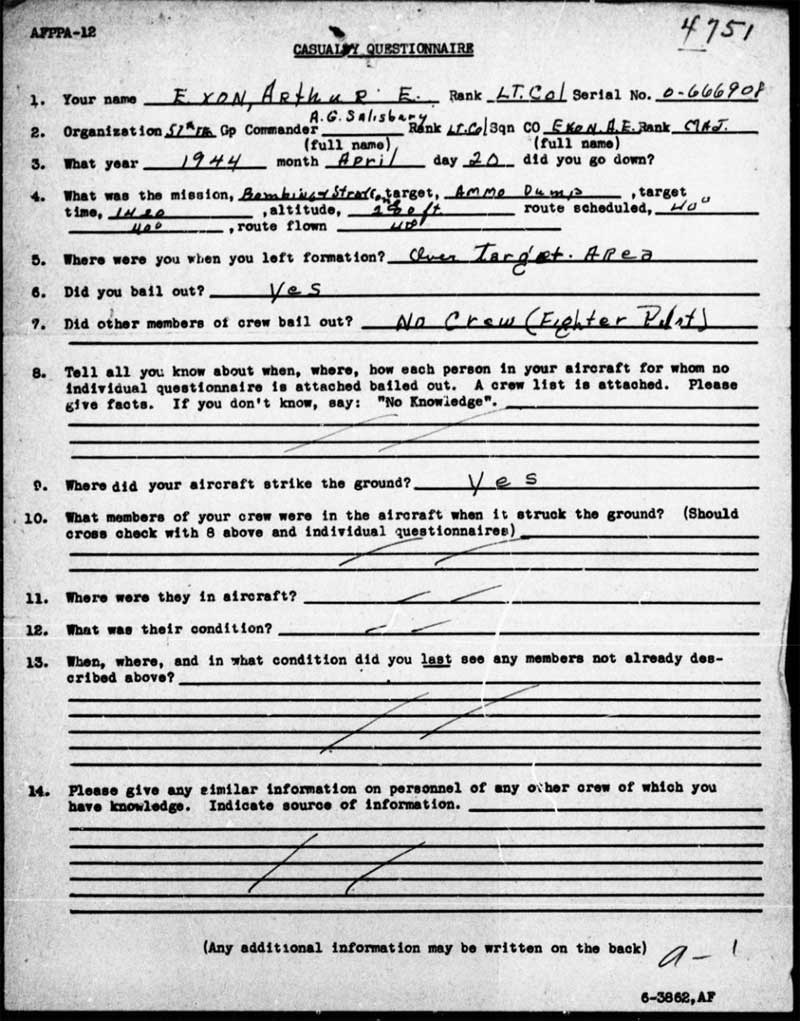 AFPPA-12
4751
CASUALTY QUESTIONNAIRE
1. Your name EXON, ArthUR E. Rank LT. Col Serial No. O-666908
A.G. Salisbury
2. Organization 57th Gp Commander Rank Lt. Col Sqn CO EXON. A.E. Rank MAJ.
(full name) (full name)
3. What year 1944 month April day 20 did you go down?
4. What was the mission, Bombing & Strafe, target, AMMO Dump, target
time, , altitude, ft route scheduled,
, route flown
5. Where were you when you left formation? Over Target. ARea
6. Did you bail out? Yes
7. Did other members of crew bail out? No Crew (Fighter Pilot)
8. Tell all you know about when, where, how each person in your aircraft for whom no
individual questionnaire is attached bailed out. A crew list is attached. Please
give facts. If you don't know, say: "No Knowledge".
9. Where did your aircraft strike the ground? Yes
10. What members of your crew were in the aircraft when it struck the ground? (Should
cross check with 8 above and individual questionnaires)
11. Where were they in aircraft?
12. What was their condition?
13. When, where, and in what condition did you last see any members not already des-
cribed above?
14. Please give any similar information on personnel of any other crew of which you
have knowledge. Indicate source of information.
(Any additional information may be written on the back) a-1
6-3862,AF